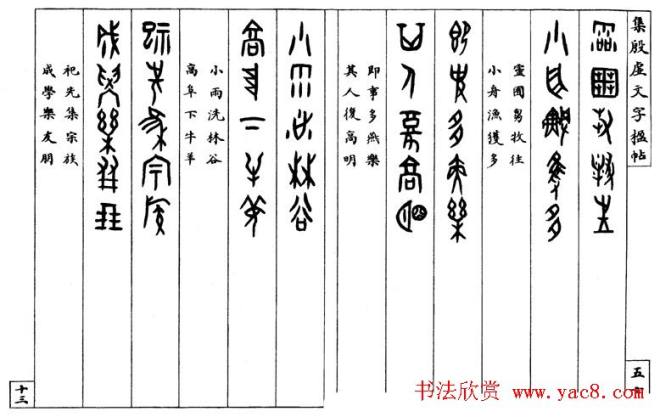 集殷虛文字楹帖
靈圃芻牧往
小舟漁獲多
即事多燕樂
其人復高明
小雨洗林谷
高阜下牛羊
祀先集宗族
成學樂友朋
五言
十三
书法欣赏
www.yac8.com